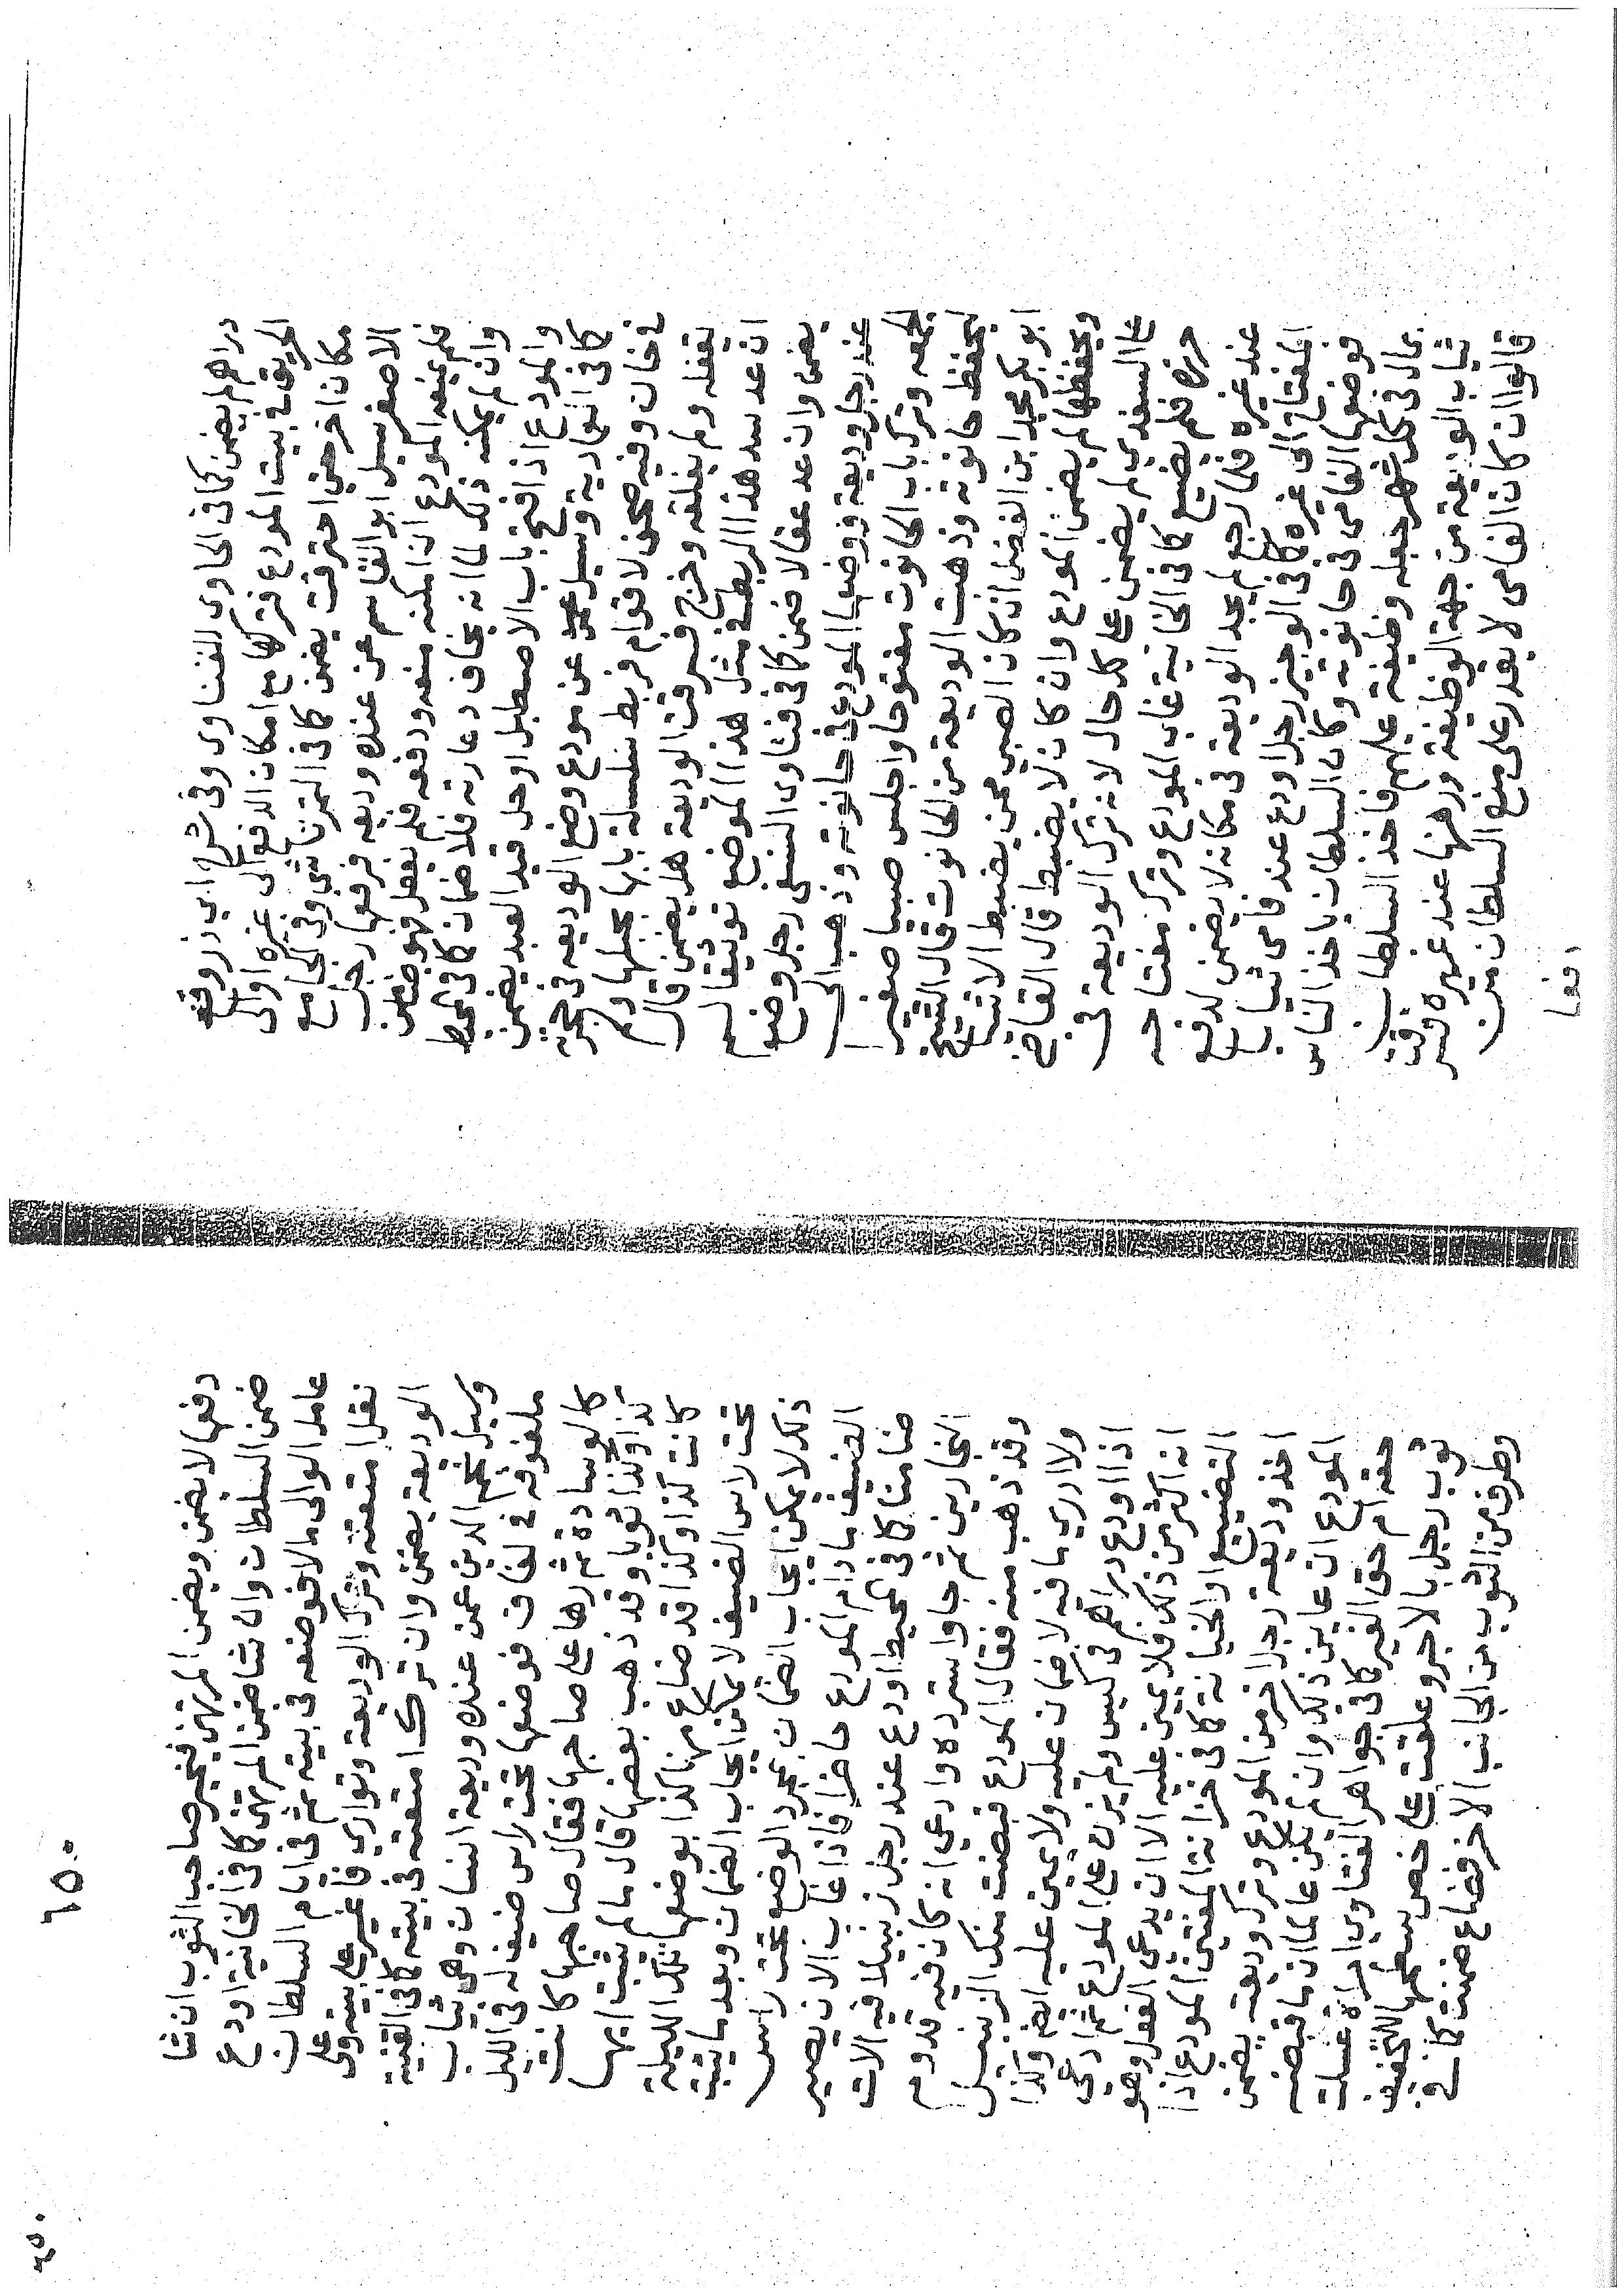 دراهم لم يضمن كما في الحاوى للفتاوى وفى شرح ابي ذر وقع
الحريق في بيت المودع فتركها مع امكان الدفع الى غيره او الى
مكان اخر حتى احترقت يضمن كما في التمرتاشي وفي الجامع
الاصغر سيل ابو القاسم عن عنده وديعه فرفعها رجل
فلم يمنعه المودع ان امكنه منعه ودفعه فلم يفعل فهو ضامن
وان لم يمكنه ذلك لما انه يخاف دعارته فلا ضمان كما في المحيط
والمودع اذا فتح باب الاصطبل او حل قيد العبد يضمن
كما في العمادية وسيل عن مودع وضع الوديعه في حجرة
في خان وفيه صحن لاقوام فربط سلسلة بابها بحبلها ولم
يقفله ولم يغلقه وخرج فسرقت الوديعة هل يضمن قال
ان عد سد هذا الربط في مثل هذا الموضع توثيقا لم
يضمن وان عد غفالا ضمن كما في فتاوى النسفى رجل وضع
عند رجل وديعة ووضعها المودع في حانوته وذهب الى
الجمعه وترك باب الحانوت مفتوحا واجلس صبيا صغيرا
ليحفظ حانوته وذهبت الوديعة من الحانوت قال الشيخ
ابو بكر محمد ابن الفضل ان كان الصبي ممن يضبط الاشيا
ويحفظها لم يضمن المودع وان كان لا يضبط قال القاضي
على السغدي لم يضمن على كل حال لانه ترك الوديعة في
حرزه فلم يضيع كما في الخانية غاب المودع وترك مفتاحه
عند غيره فلما رجع لم يجد الوديعة في مكانه لا يضمن لدفع
المفتاح الى غيره كما في الوجيز رجل اودع عند فامى ثياب
فوضعها الفامى في حانوته وكان السلطان ياخذ الناس
بمال في كل شهر جعله وظيفة عليهم فاخذ السلطان
ثياب الوديعة من جهة الوظيفة ورهنها عند غيره فسرقت
قالوا ان كان الفامى لا يقدر على منع السلطان من
دفعها
١٥٠
دفعها لا يضمن ويضمن المرتهن فيخير صاحب الثوب ان شا
ضمن السلطان وان شا ضمن المرتهن كما في الخانية اودع
عامل الوالى مالا فوضعه في بيته ثم في ايام السلطان
نقل امتعته وترك الوديعة وتواري فاغير على بيته وعلى
الوديعة يضمن وان ترك امتعته في بيته كما في القنية
وسيل نجم الدين عمن عنده وديعة انسان وهي ثياب
ملفوفة في لفاف فوضعها تحت راس ضيف له في الليل
كالوسادة ثم ردها على صاحبها فقال صاحبها كانت
كذا وكذا ثوبا وقد ذهب بعضها قال ما لم يثبت انها
كانت كذا وكذا قد ضاع منها كذا بوضعها تلك الليلة
تحت راس الضيف لا يمكن ايجاب الضمان وبعد ما يثبت
ذلك لا يمكن ايجاب الضمان بمجرد الوضع تحت راس
الضيف ما دام المودع حاضرا فاذا غاب الان يصير
ضامنا كما في المحيط اودع عند رجل زنبيلا فيه الات
النجارين ثم جا واسترده وادعي انه كان فيه قدوم
وقد ذهب منه فقال المودع قبضت منك الزنبيل
ولا ادري ما فيه لا ضمان عليه ولا يمين عليه وكذا
اذا اودع دراهم في كيس ولم يزن على المودع ثم ادعى
انه اكثر من ذلك فلا يمين عليه الا ان يدعي الفعل وهو
التضييع او الخيانة كما في خزانة المفتين المودع اذا
اخذ وديعة رجل اخر من المودع وترك وديعته يضمن
المودع ان عاين ذلك وان لم يكن عالما ان ما قبضه
حقه ام حق الغير كما في جواهر الفتاوي امراة غسلت
ثوب رجل بالاجر وعلقت على خص سطحها للتجفيف
وطرف من الثوب من الجانب الاخر فضاع ضمنت كما في